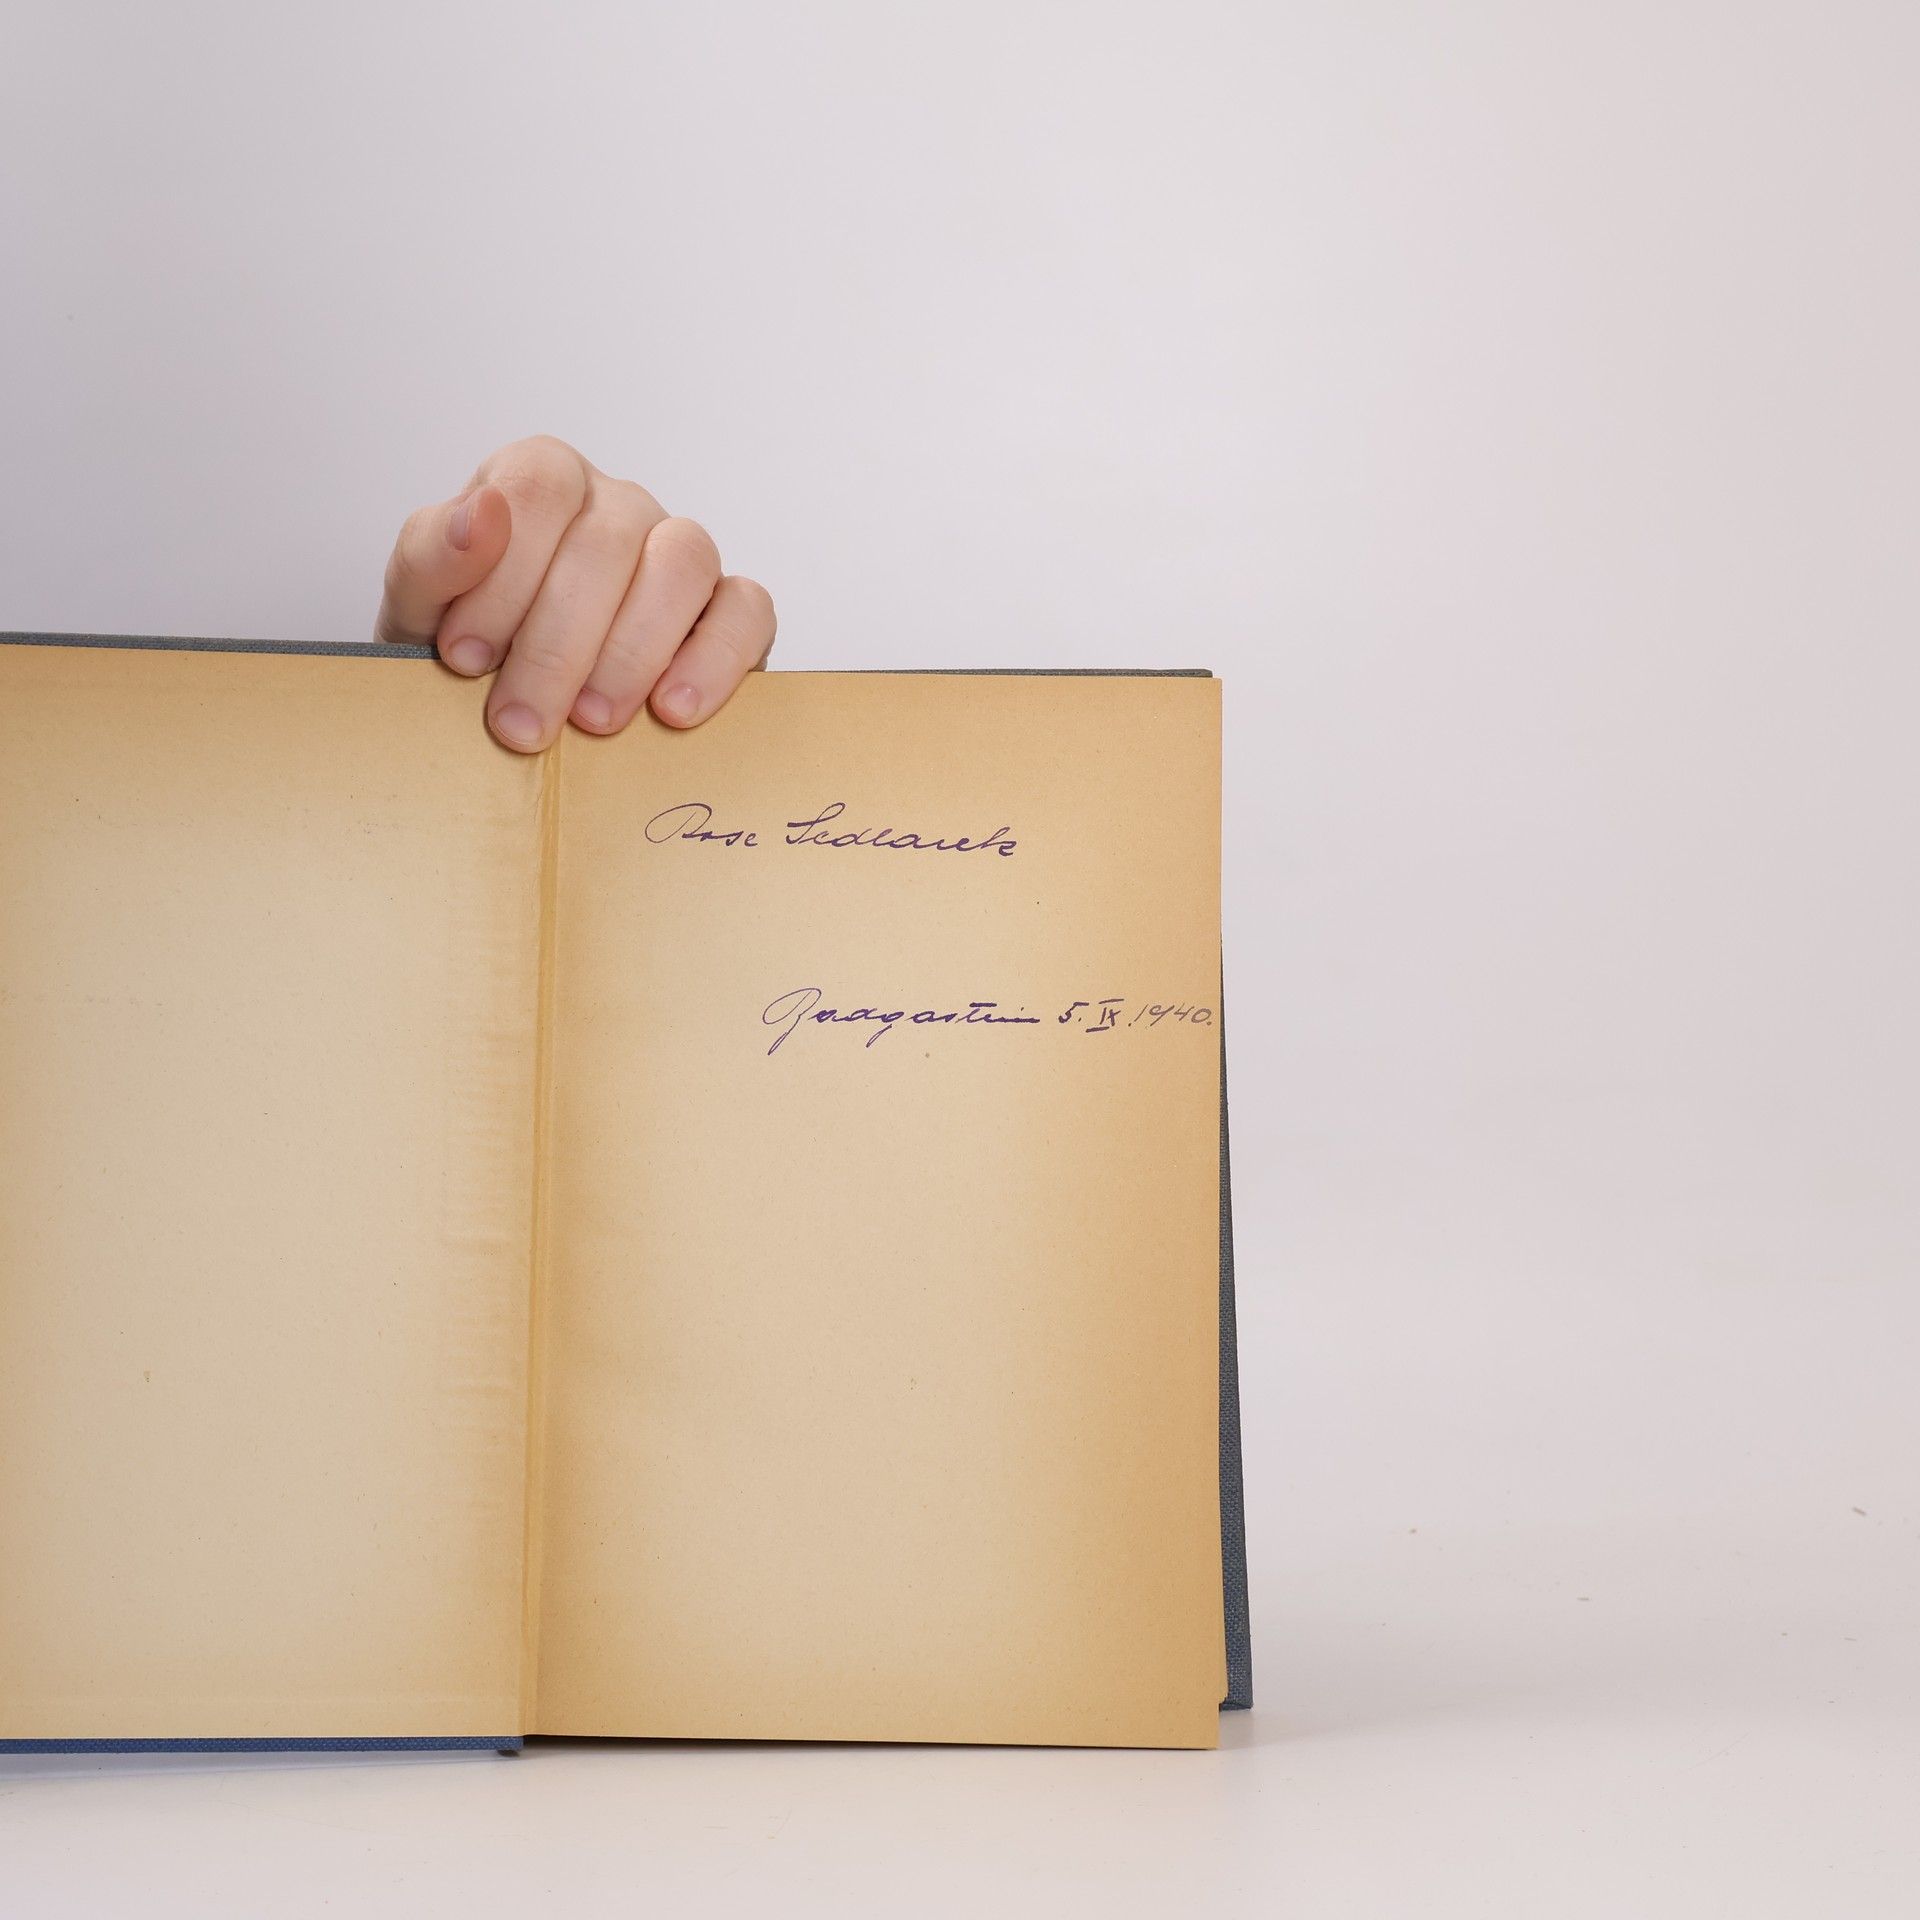 Rose Sedlacek
Badgastein 5. IX. 1940.